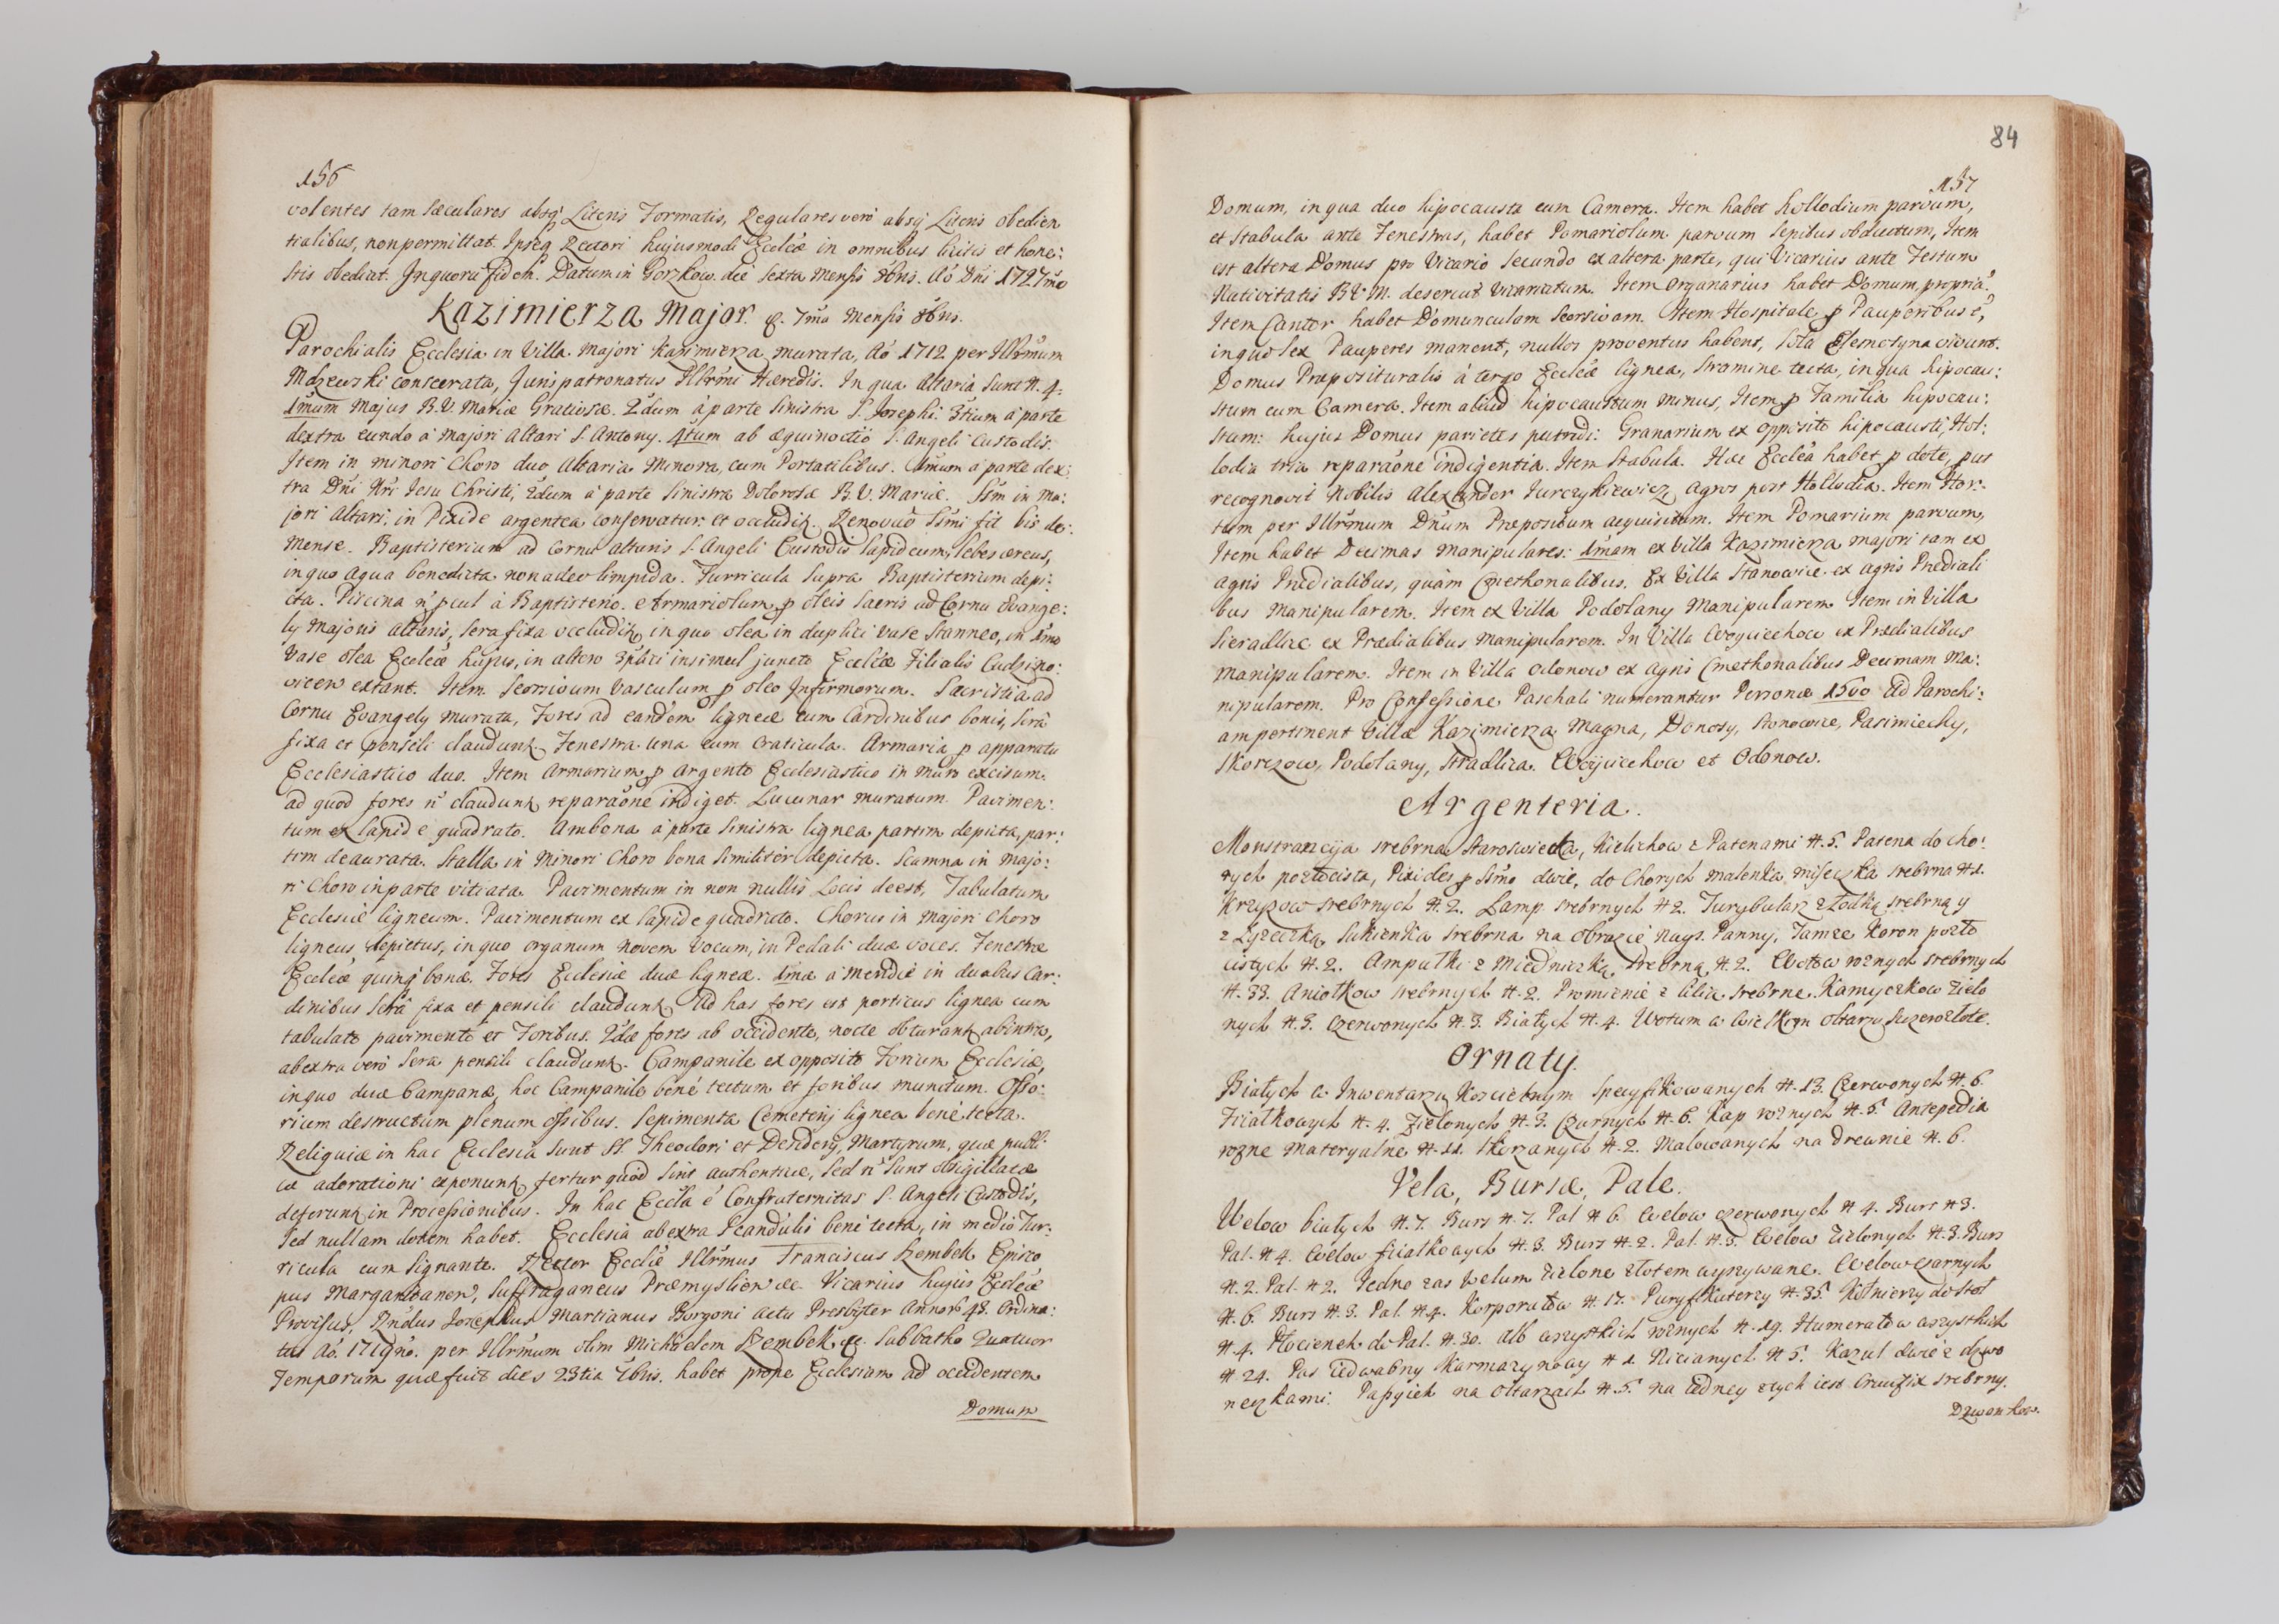 156
volentes tam sæculares absq; Literis Formatis, Regulares verò absq; Literis obedien
tialibus, non permittat. Ipseq; Rectori hujusmodi Eccleæ in omnibus licitis et hone:
stis obediat. In quorũ fidem. Datum in Gorzkow. die sexta Mensis 8bris. Aõ Dni 1727mo
Kazimierza Major. &. 7ma Mensis 8bris.
Parochialis Ecclesia in Villa Majori Kazimierza murata, Aõ 1712 per Illrm̃um
consecrata, Juris patronatus Illrm̃i Hæredis. In qua altaria sunt N. 4.
1mum Majus B. V. Mariæ Gratiosæ. 2dum à parte sinistra S. Josephi. 3tium à parte
dextra eundo à majori Altari S. Antony. 4tum ab æquinoctiõ S. Angeli Custodis.
Item in minori Choro duo Altaria Minora, cum Portatilibus. 1mum à parte dex:
tra Dñi Nr̃i Iesu Christi, 2dum à parte sinistra Dolorosæ B. V. Mariæ. Ssm̃ in Ma:
jori Altari, in Pixide argentea conservatur et occludit̃. Renovaõ Ssmi fit bis de:
Mense. Baptisterium ad cornu altaris S. Angeli Custodis lapideum, lebes æreus,
in quo aqua benedicta non adeo limpida. Turricula supra Baptisterium depi:
cta. Piscina ñ pcul à Baptisterio. Armariolum p oleis sacris ad Cornu Evange:
ly Majoris altaris, sera fixa occludit̃, in quo olea in duplici vase stanneo, in 1mo
Vase olea Eccleæ hujus, in altero 3plici insimul juncto Eccleæ Filialis Cudzino:
vicen extant. Item seorsivum Vasculum p oleo Infirmorum. Sacristia ad
Cornu Evangely murata, Fores ad eandem ligneæ cum Cardinibus bonis, serâ
fixa et pensili claudunt̃. Fenestra una cum craticula. Armaria p apparatu
Ecclesiastico duo. Item Armarium p Argento Ecclesiastico in muro excisum
ad quod fores ñ claudunt̃ reparaõne indiget. Lacunar muratum. Pavimen:
tum ex lapide quadrato. Ambona à parte sinistra lignea partim depicta, par:
tim deaurata. Stalla in Minori choro bona similiter depicta. Scamna in majo:
ri Choro in parte vitiata. Pavimentum in non nullis Locis deest, Tabulatum
Ecclesiæ ligneum. Pavimentum ex lapide quadrato. Chorus in Majori choro
ligneus depictus, in quo organum novem vocum, in Pedali duæ voces. Fenestræ
Eccleæ quinq; bonæ. Fores Ecclesiæ duæ ligneæ. 1mæ à meridie in duobus Car:
dinibus serâ fixa et pensili claudunt̃. Ad has fores est porticus lignea cum
tabulato pavimento et Foribus. 2dæ fores ab occidente, nocte obturant̃ ab intra,
ab extra verò sera pensili claudunt̃. Campanile ex opposito Forium Ecclesiæ,
in quo duæ Campanæ, hoc Campanile bené tectum et foribus munitum. Osso:
rium destructum plenum ossibus. Sepimenta Cemeterij lignea bené tecta.
Reliquiæ in hac Ecclesia sunt SS. Theodori et Desidery, Martyrum, quæ publi
cæ adorationi exponunt̃ fertur quòd sint authenticæ, sed ñ sunt obsigillatæ
deferunt̃ in Processionibus. In hac Eccl̃a é Confraternitas S. Angeli Custodis,
sed nullam dotem habet. Ecclesia ab extra scandulis bené tecta, in medio Tur:
ricula cum signante. Rector Eccliæ Illrm̃us Franciscus Szembek Episco
pus Margaritanen, Suffraganeus Præmyslien &c. Vicarius hujus Eccleæ
Provisus, Rndus Josephus Martianus Borgoni actu Presbyter Annorũ 48. Ordina:
tus Aõ. 1719no. per Illrm̃um olim Michaelem Szembek &c. Sabbatho Quatuor
Temporum quæ fuit dies 23tia 7bris. habet prope Ecclesiam ad occidentem
Domum
84
157
Domum, in qua duo hipocausta cum Camera. Item habet hollodium parvum,
et Stabula ante Fenestras, habet Pomariolum parvum sepibus obductum, Item
est altera Domus pro Vicario secundo ex altera parte, qui Vicarius ante Festum
Nativitatis B V M. deseruit vicariatum. Item organarius habet Domum propriã.
Item Cantor habet Domunculam seorsivam. Item Hospitale p Pauperibus é,
in quo sex Pauperes manent, nullos proventus habent, sola Elemosyna vivunt.
Domus Præposituralis à tergo Eccleæ lignea, stramine tecta, in qua hipocau:
stum cum Camera. Item aliud hipocaustum minus, Item p Familia hipocau:
stum: hujus Domus parietes putridi. Granarium ex opposito hipocausti, Hol:
lodia tria reparaõne indigentia. Item Stabula. Hæc Eccleâ habet p dote, put
recognovit Nobilis Alexander Jurczykiewicz agros post Hollodia. Item Hor:
tum per Illrm̃um Dnum Præpositum acquisitum. Item Pomarium parvum,
Item habet Decimas manipulares: 1mam ex villa Kazimierza majori tam ex
agris Prædialibus, quàm Cmethonalibus. Ex Villa Stanowice ex agris Prædiali
bus Manipularem. Item ex Villa Podolany Manipularem Item in Villa
Sieradlic ex Prædialibus Manipularem. In Villa Woyciechow ex Prædialibus
manipularem. Item in Villa Odonow ex agris Cmethonalibus Decimam Ma:
nipularem. Pro Confessione Paschali numerantur Personæ 1500 Ad Parochi:
am pertinent Villæ Kazimierza Magna, Donosy, Stonowice, Pasimiechy,
Skorczow, Podolany, Stradlica. Woyciechow et Odonow.
Argenteria.
Monstrancyja srebrna staroswiecka, Kielichow z Patenami #. 5. Patena do cho:
rych pozłocista, Pixides p Ssmo dwie, do Chorych malenka miseczka srebrna # 1.
Krzyzow srebrnych #. 2. Lamp srebrnych # 2. Turybularz z Łodką srebrną y
z Łyzeczką Sukienka srebrna na obrazie Nays. Panny. Tamze Koron pozło
cistych #. 2. Ampułki z Miedniczką srebrną #. 2. Wotow roznych srebrnych
#. 33. Aniołkow srebrnych #. 2. Promienie z lilią srebrne. Kamyczkow zielo
nych #. 3. czerwonych #. 3. Białych #. 4. Wotum w wielkim ołtarzu szczerozłote.
Ornaty.
Białych w Inwentarzu Koscielnym specyfikowanych #. 13. Czerwonych #. 6.
Fiałkowych #. 4. Zielonych #. 3. Czarnych #. 6. Kap roznych #. 5. Antepedia
rozne materyalne #. 11. Skorzanych #. 2. Malowanych na drewnie #. 6.
Vela, Bursæ, Pale.
Welow białych #. 7. Burs #. 7. Pal # 6. Welow czerwonych # 4. Burs # 3.
Pal. # 4. Welow fiałkowych #. 3. Burs #. 2. Pal. #. 3. Welow zielonych #. 3. Burs
#. 2. Pal. # 2. Jedno zas Velum zielone złotem wyszywane. Welow czarnych
#. 6. Burs #. 3. Pal. # 4. Korporałow #. 17. Puryfikaterzy #. 35. Kołnierzy do stoł
# 4. Płocienek do Pal. #. 30. Alb wszystkich roznych #. 19. Humerałow wszystkich
#. 24. Pas iedwabny karmazynowy # 1. Nicianych # 5. Kazul dwie z dzwo
neczkami. na Ołtarzach #. 5. na iedney z tych iest Crucifix srebrny.
Dzwonkow.